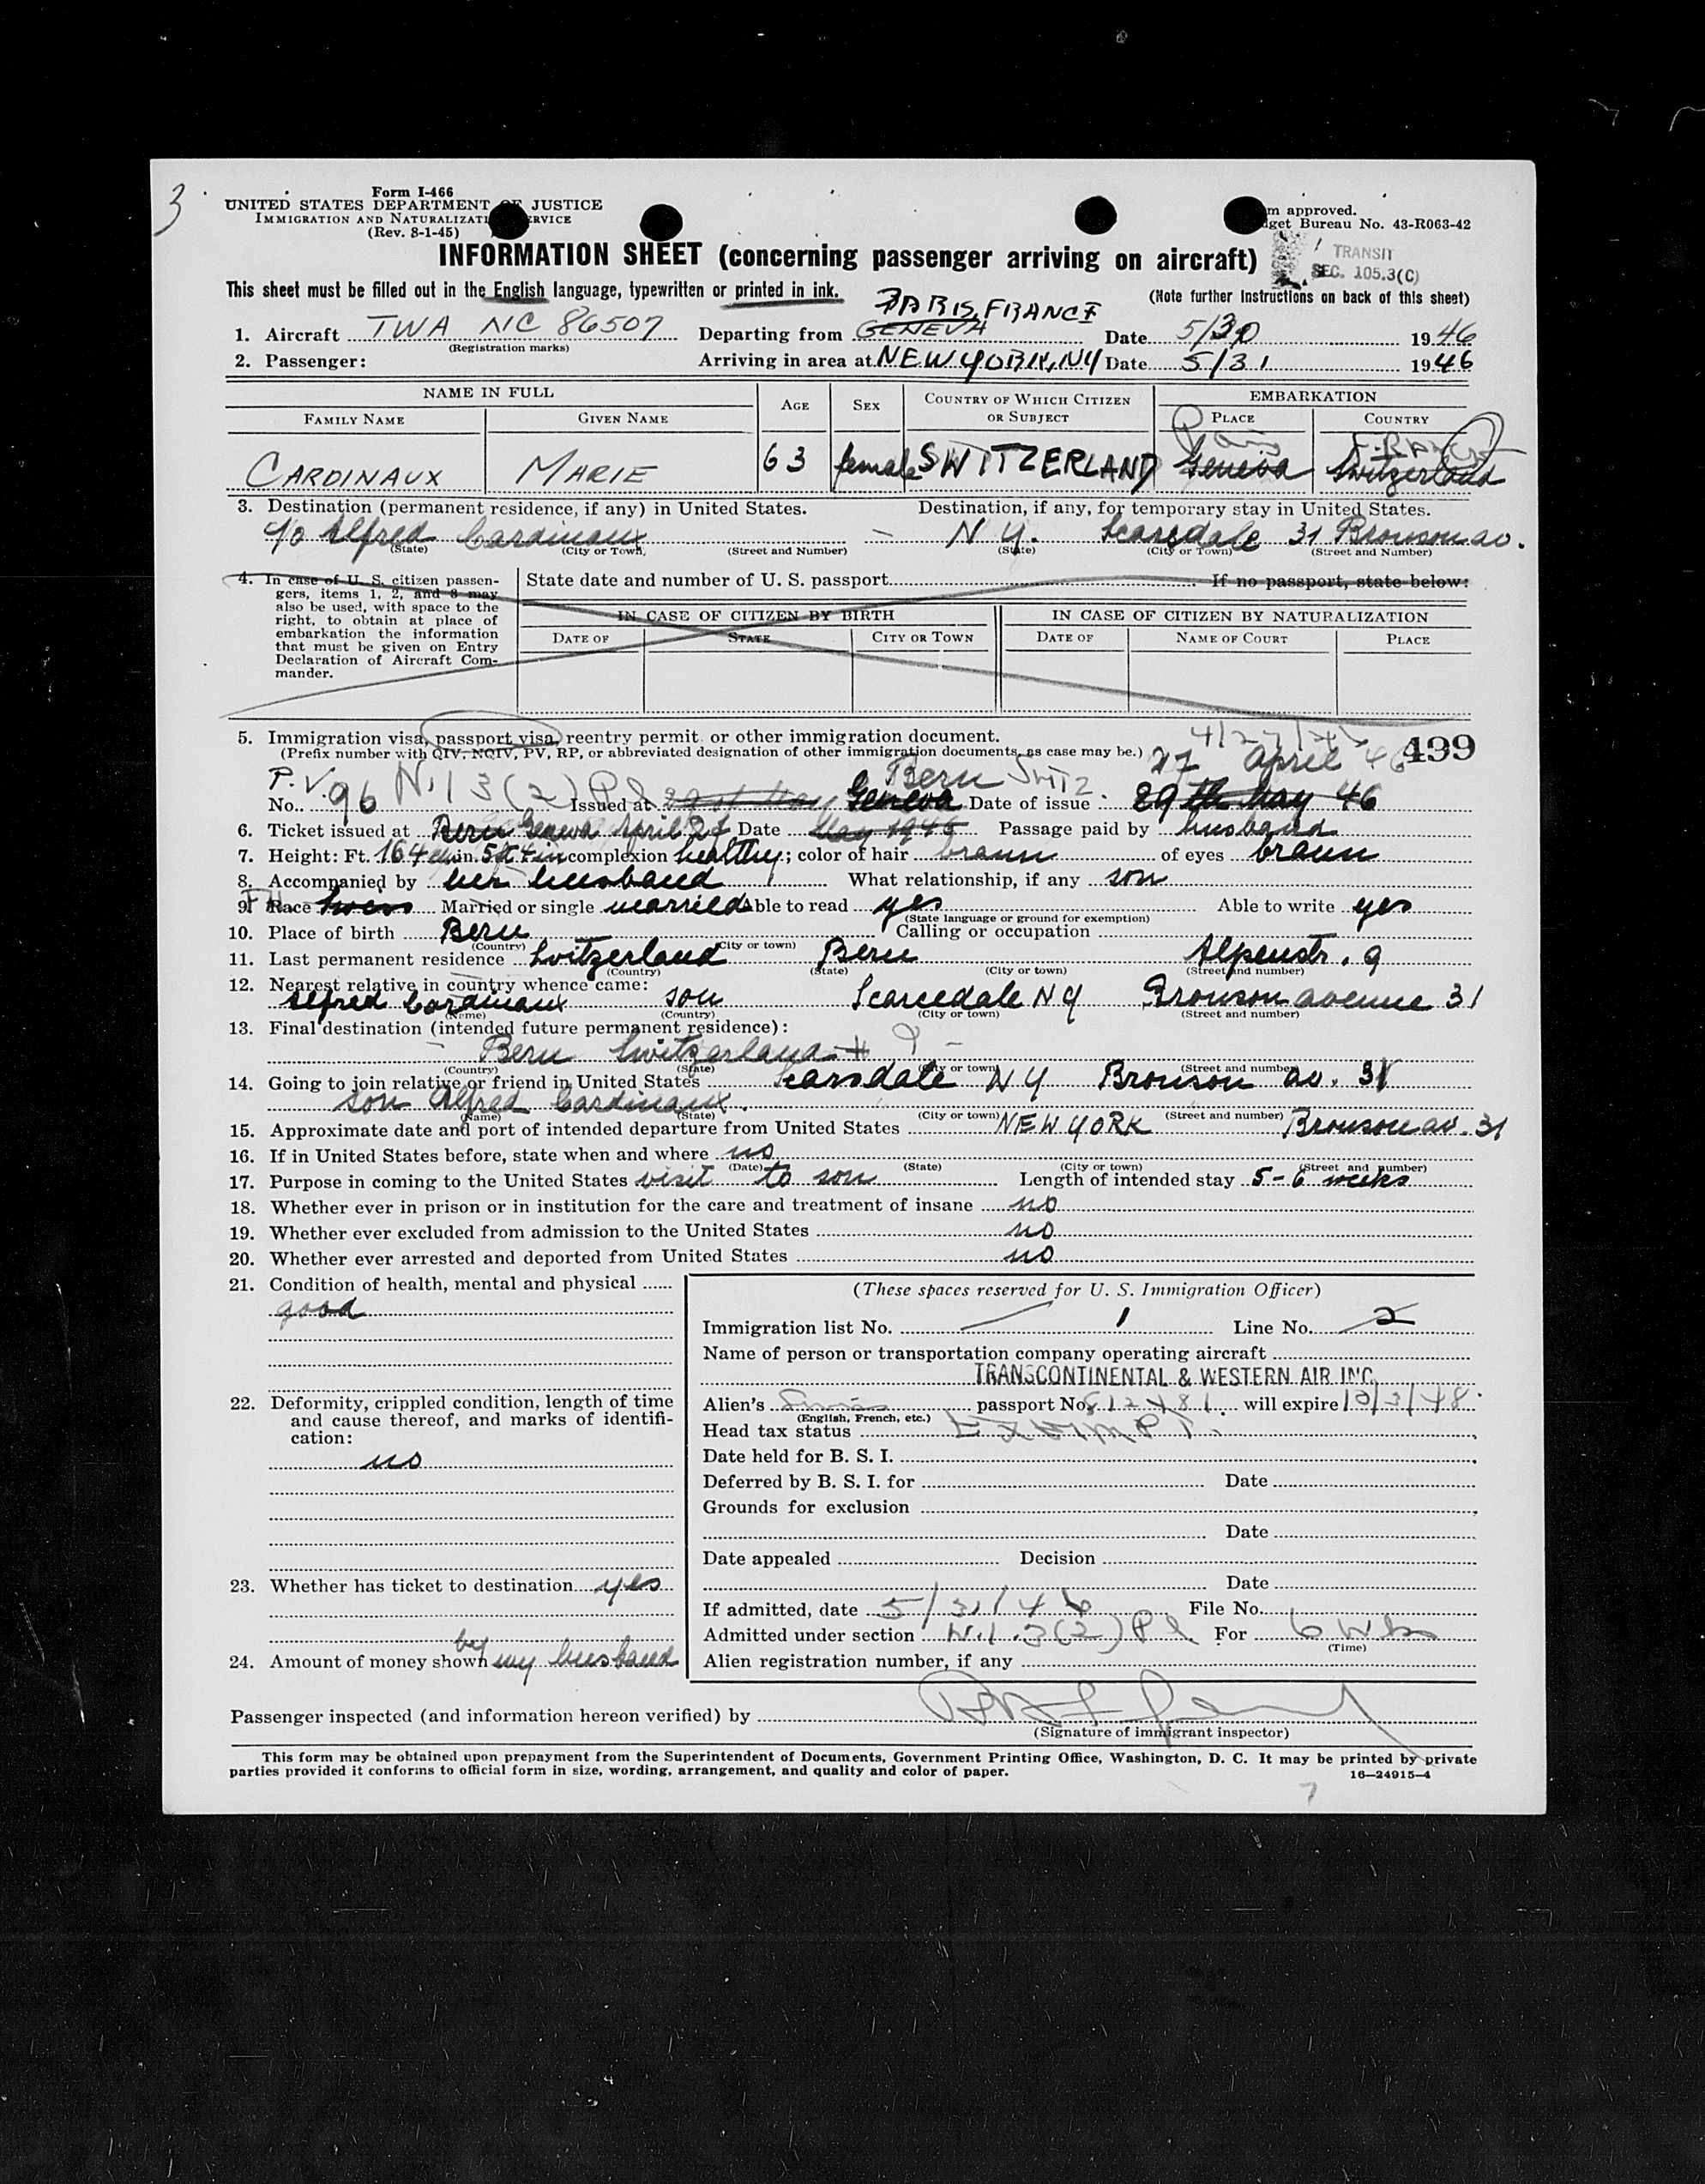 3
Form I-466
UNITED STATES DEPARTMENT OF JUSTICE
IMMIGRATION AND NATURALIZATI RVICE
(Rev. 8-1-45)
m approved.
dget Bureau No. 43-R063-42
INFORMATION SHEET (concerning passenger arriving on aircraft)
TRANSIT
SEC. 105.3(C)
This sheet must be filled out in the English language, typewritten or printed in ink.
(Note further instructions on back of this sheet)
PARIS, FRANCE
1. Aircraft TWA NC 86507 Departing from GENEVA Date 5/30 1946
(Registration marks)
2. Passenger: Arriving in area at NEW YORK, NY Date 5/31 1946
NAME IN FULL AGE SEX COUNTRY OF WHICH CITIZEN OR SUBJECT EMBARKATION
FAMILY NAME GIVEN NAME PLACE COUNTRY
Paris France
CARDINAUX MARIE 63 female SWITZERLAND Geneva Switzerland
3. Destination (permanent residence, if any) in United States. Destination, if any, for temporary stay in United States.
c/o Alfred Cardinaux — N Y. Scarsdale 31 Bronson av.
(State) (City or Town) (Street and Number) (State) (City or Town) (Street and Number)
4. In case of U. S. citizen passengers, items 1, 2, and 8 may also be used, with space to the right, to obtain at place of embarkation the information that must be given on Entry Declaration of Aircraft Commander.
State date and number of U. S. passport If no passport, state below:
IN CASE OF CITIZEN BY BIRTH IN CASE OF CITIZEN BY NATURALIZATION
DATE OF STATE CITY OR TOWN DATE OF NAME OF COURT PLACE
5. Immigration visa, passport visa, reentry permit or other immigration document.
(Prefix number with QIV, NQIV, PV, RP, or abbreviated designation of other immigration documents, as case may be.)
4/27/46 499
27 April 46
P.V. Bern Switz
No. 96 N.13(2)Pl Issued at Geneva Date of issue 29th May 46
6. Ticket issued at Bern Geneva April 27 Date May 1946 Passage paid by husband
7. Height: Ft. 164 cm in. 5ft 4in complexion healthy; color of hair braun of eyes braun
8. Accompanied by her husband What relationship, if any son
9. Race Married or single married Able to read yes Able to write yes
(State language or ground for exemption)
10. Place of birth Bern Calling or occupation
(Country) (City or town)
11. Last permanent residence Switzerland Bern Alpenstr. 9
(Country) (State) (City or town) (Street and number)
12. Nearest relative in country whence came:
Alfred Cardinaux son Scarcedale NY Bronson avenue 31
(Name) (Country) (City or town) (Street and number)
13. Final destination (intended future permanent residence):
Bern Switzerland
(Country) (State) (City or town) (Street and number)
14. Going to join relative or friend in United States Scarsdale NY Bronson av. 31
son Alfred Cardinaux.
(Name) (State) (City or town) (Street and number)
15. Approximate date and port of intended departure from United States NEW YORK Bronson av. 31
16. If in United States before, state when and where no
(Date) (State) (City or town) (Street and number)
17. Purpose in coming to the United States visit to son Length of intended stay 5-6 weeks
18. Whether ever in prison or in institution for the care and treatment of insane no
19. Whether ever excluded from admission to the United States no
20. Whether ever arrested and deported from United States no
21. Condition of health, mental and physical
good
22. Deformity, crippled condition, length of time and cause thereof, and marks of identification:
no
23. Whether has ticket to destination yes
24. Amount of money shown by my husband
(These spaces reserved for U. S. Immigration Officer)
Immigration list No. 1 Line No. 2
Name of person or transportation company operating aircraft
TRANSCONTINENTAL & WESTERN AIR INC.
Alien's Swiss passport No. 612481 will expire 10/3/48.
(English, French, etc.)
Head tax status EXEMPT.
Date held for B. S. I.
Deferred by B. S. I. for Date
Grounds for exclusion
Date
Date appealed Decision
Date
If admitted, date 5/31/46 File No.
Admitted under section N.1.3(2)Pl For 6 Wks
(Time)
Alien registration number, if any
Passenger inspected (and information hereon verified) by
(Signature of immigrant inspector)
This form may be obtained upon prepayment from the Superintendent of Documents, Government Printing Office, Washington, D. C. It may be printed by private
parties provided it conforms to official form in size, wording, arrangement, and quality and color of paper.
16—24915-4
7